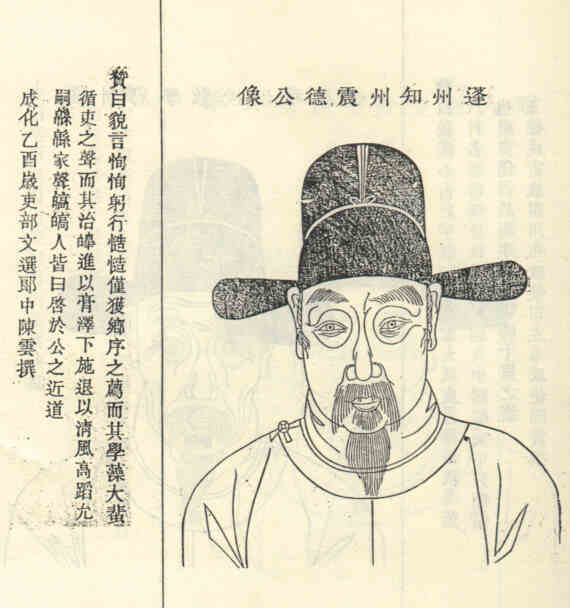 蓬州知州震德公像
贊曰貌言恂恂躬行慥慥僅獲鄉序之薦而其學藻大蜚
循吏之聲而其治進以膏澤下施退以清風高蹈允
嗣緜緜家聲人皆曰啓於公之近道
成化乙酉歲吏部文選郎中陳雲撰